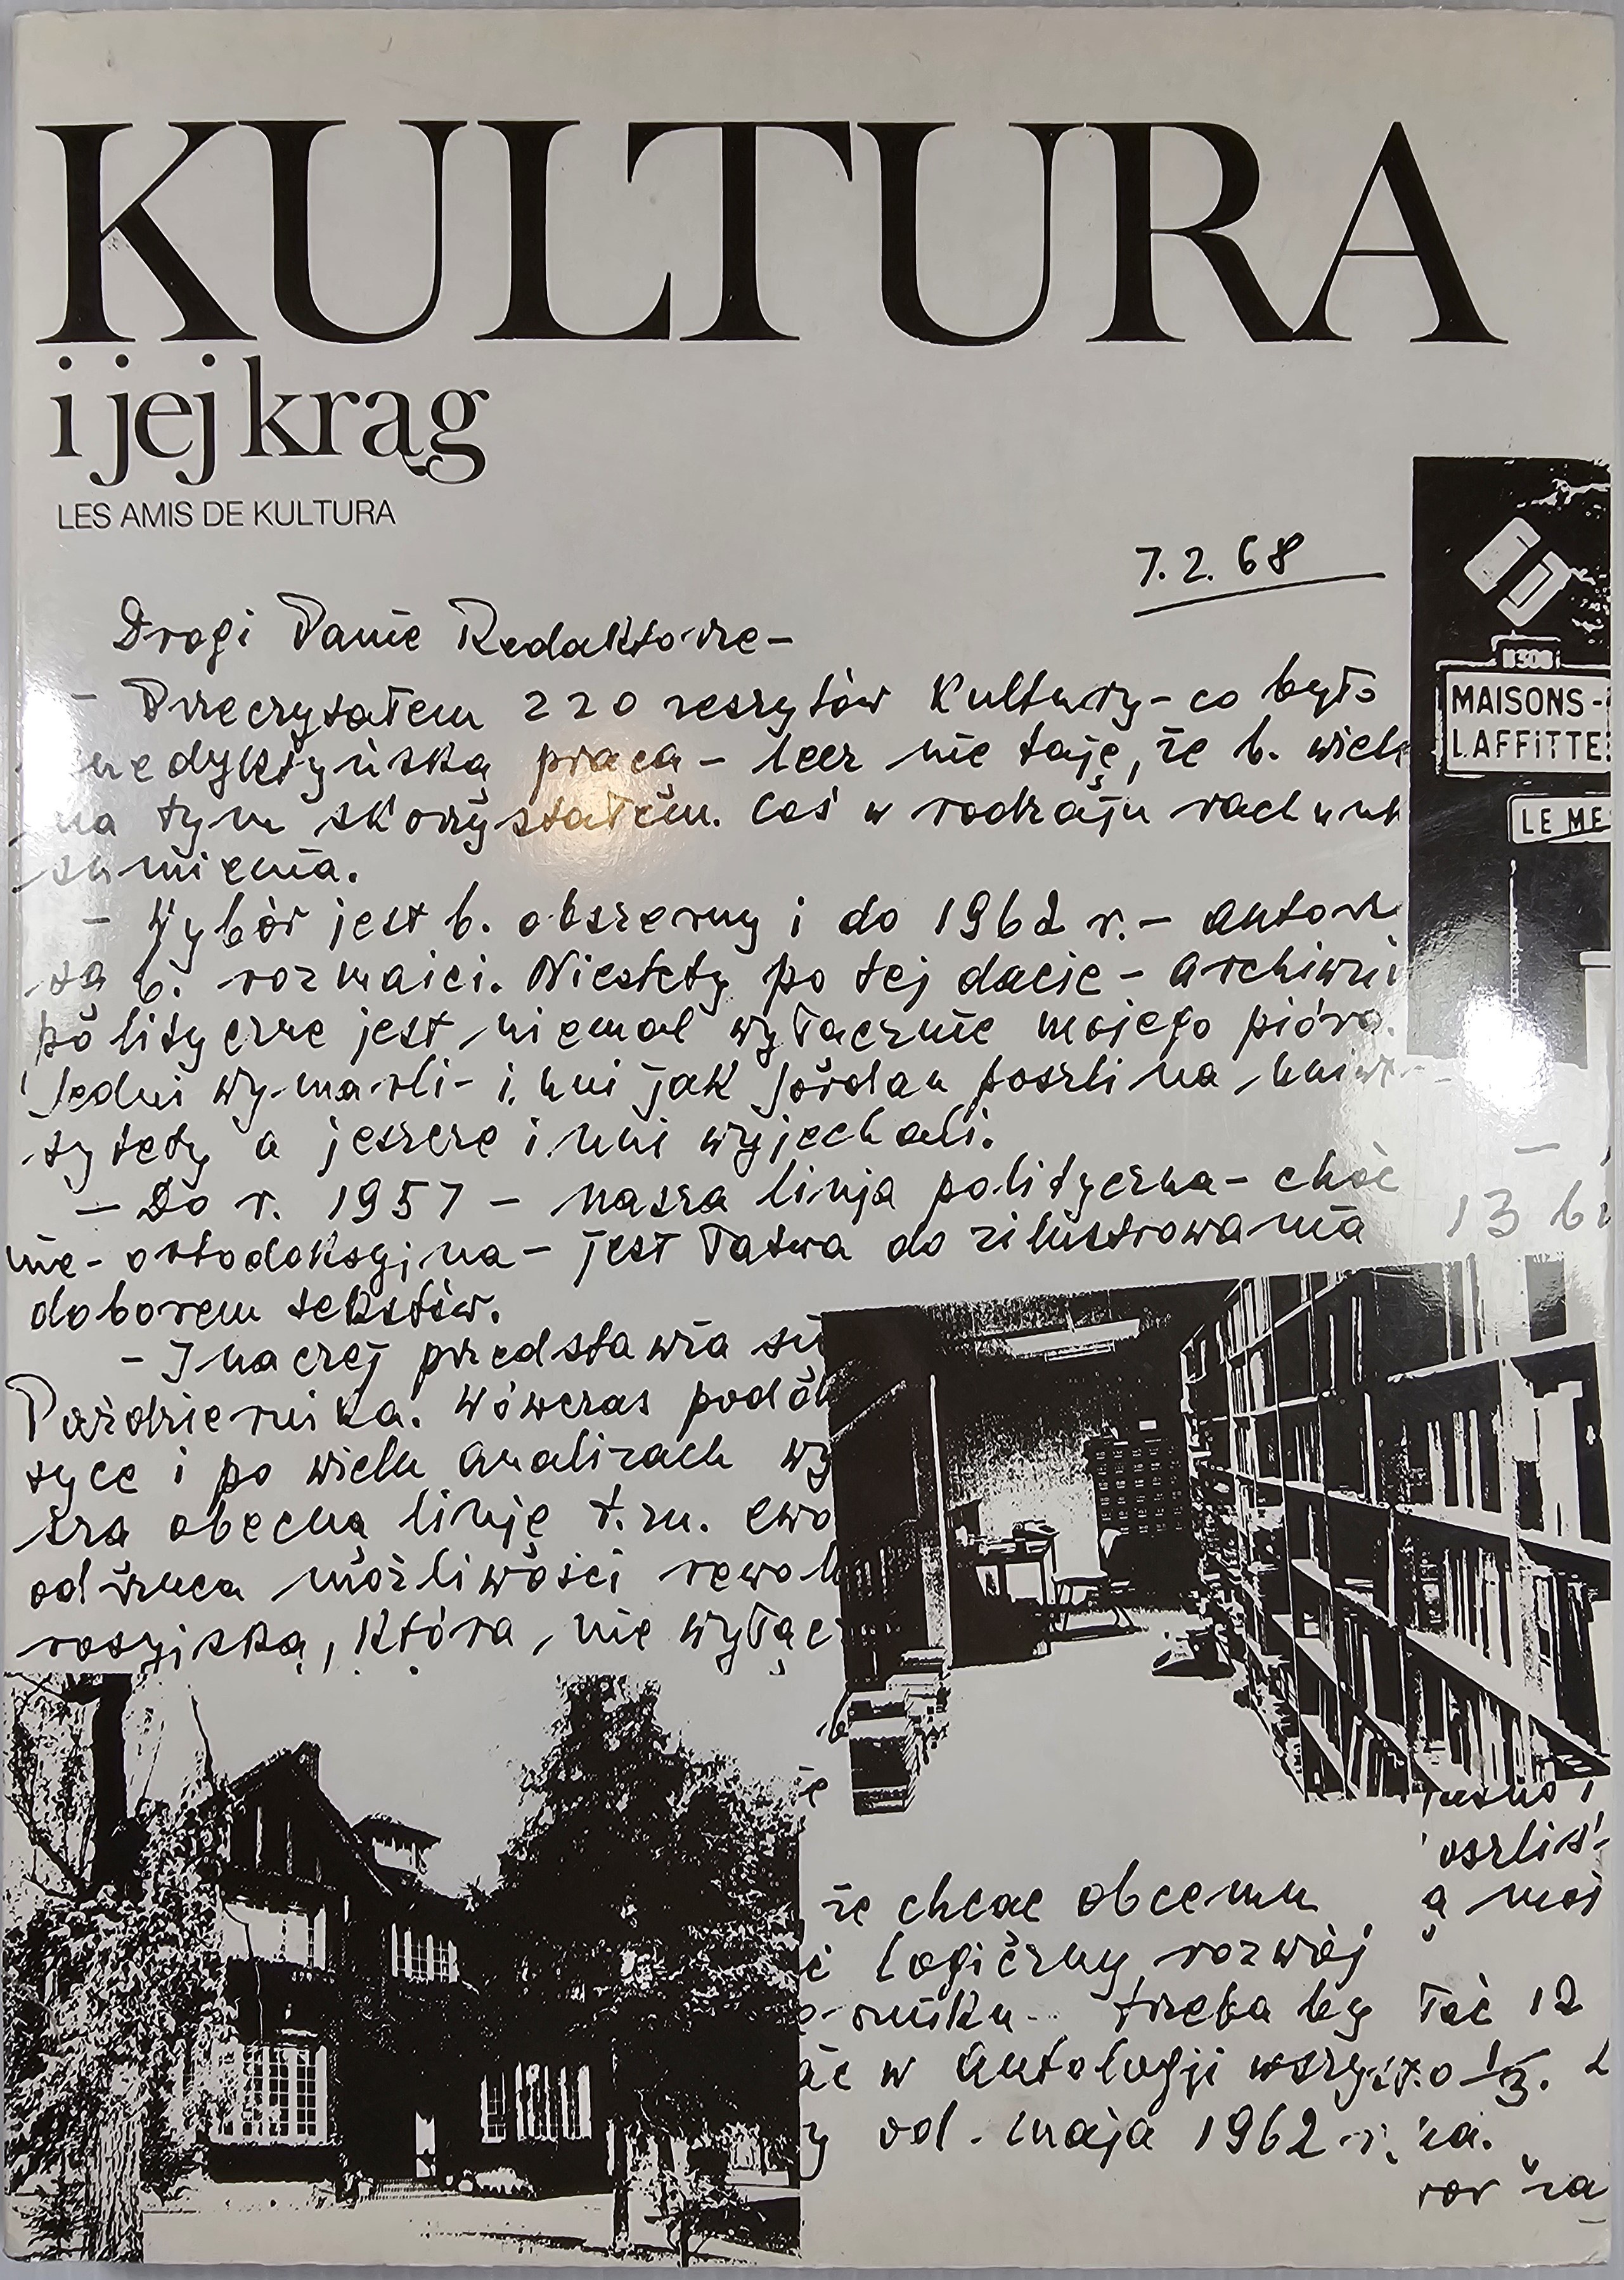 KULTURA
i jej krąg
LES AMIS DE KULTURA
7.2.68
Drogi Panie Redaktorze-
- Przeczytałem 220 zeszytów Kultury - co było
nedyktyńską pracą - lecz nie taję, że b. wiele
na tym skorzystałem. Coś w rodzaju rachunk
sumienia.
- Wybór jest b. obszerny i do 1962 r. - autorz
są b. rozmaici. Niestety po tej dacie - archiwu
polityczne jest niemal wyłącznie mojego pióra.
Jedni wymarli - inni jak Jordan poszli na uniwer-
sytety a jeszcze inni wyjechali.
- Do r. 1957 - nasza linja polityczna - choć
nie-ortodoksyjna - jest łatwa do zilustrowania
doborem tekstów.
- Inaczej przedstawia się
Października. Wówczas
syce i po wielu analizach wy
sza obecną linję t.zn. ewo
odrzuca możliwości rewol
rosyjską, która, nie wyłącz
że chcąc obcemu
ć logiczny rozwój
rniku - trzeba by
ać w Antologji wszystko
y od maja 1962 r.
MAISONS-
LAFFITTE
LE ME
13
oszliś
ą moż
łać 12
1/3.
na.